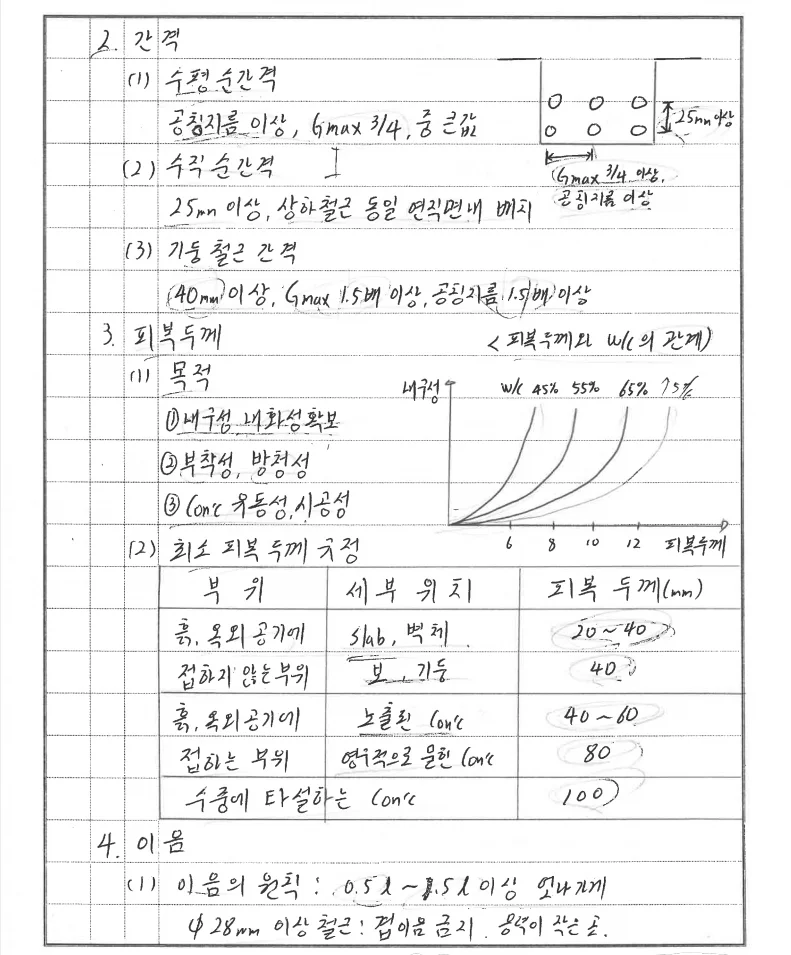 2. 간격
(1) 수평 순간격
공칭지름 이상, Gmax 3/4, 중 큰값
25mm 이상
Gmax 3/4 이상,
공칭지름 이상
(2) 수직 순간격
25mm 이상, 상하철근 동일 연직면내 배치
(3) 기둥 철근 간격
40mm 이상, Gmax 1.5배 이상, 공칭지름 1.5배 이상
3. 피복두께
< 피복두께와 W/C의 관계)
(1) 목적
① 내구성, 내화성확보
② 부착성, 방청성
③ Con'c 유동성, 시공성
내구성
W/C 45% 55% 65% 75%
6 8 10 12 피복두께
(2) 최소 피복 두께 규정
부 위 세부 위치 피복 두께(mm)
흙, 옥외 공기에 slab, 벽체 20~40
접하지 않는 부위 보, 기둥 40
흙, 옥외 공기에 노출된 Con'c 40~60
접하는 부위 영구적으로 묻힌 Con'c 80
수중에 타설하는 Con'c 100
4. 이음
(1) 이음의 원칙 : 0.5l ~ 1.5l 이상 엇나가게
φ28mm 이상 철근 : 겹이음 금지. 응력이 작은 곳.